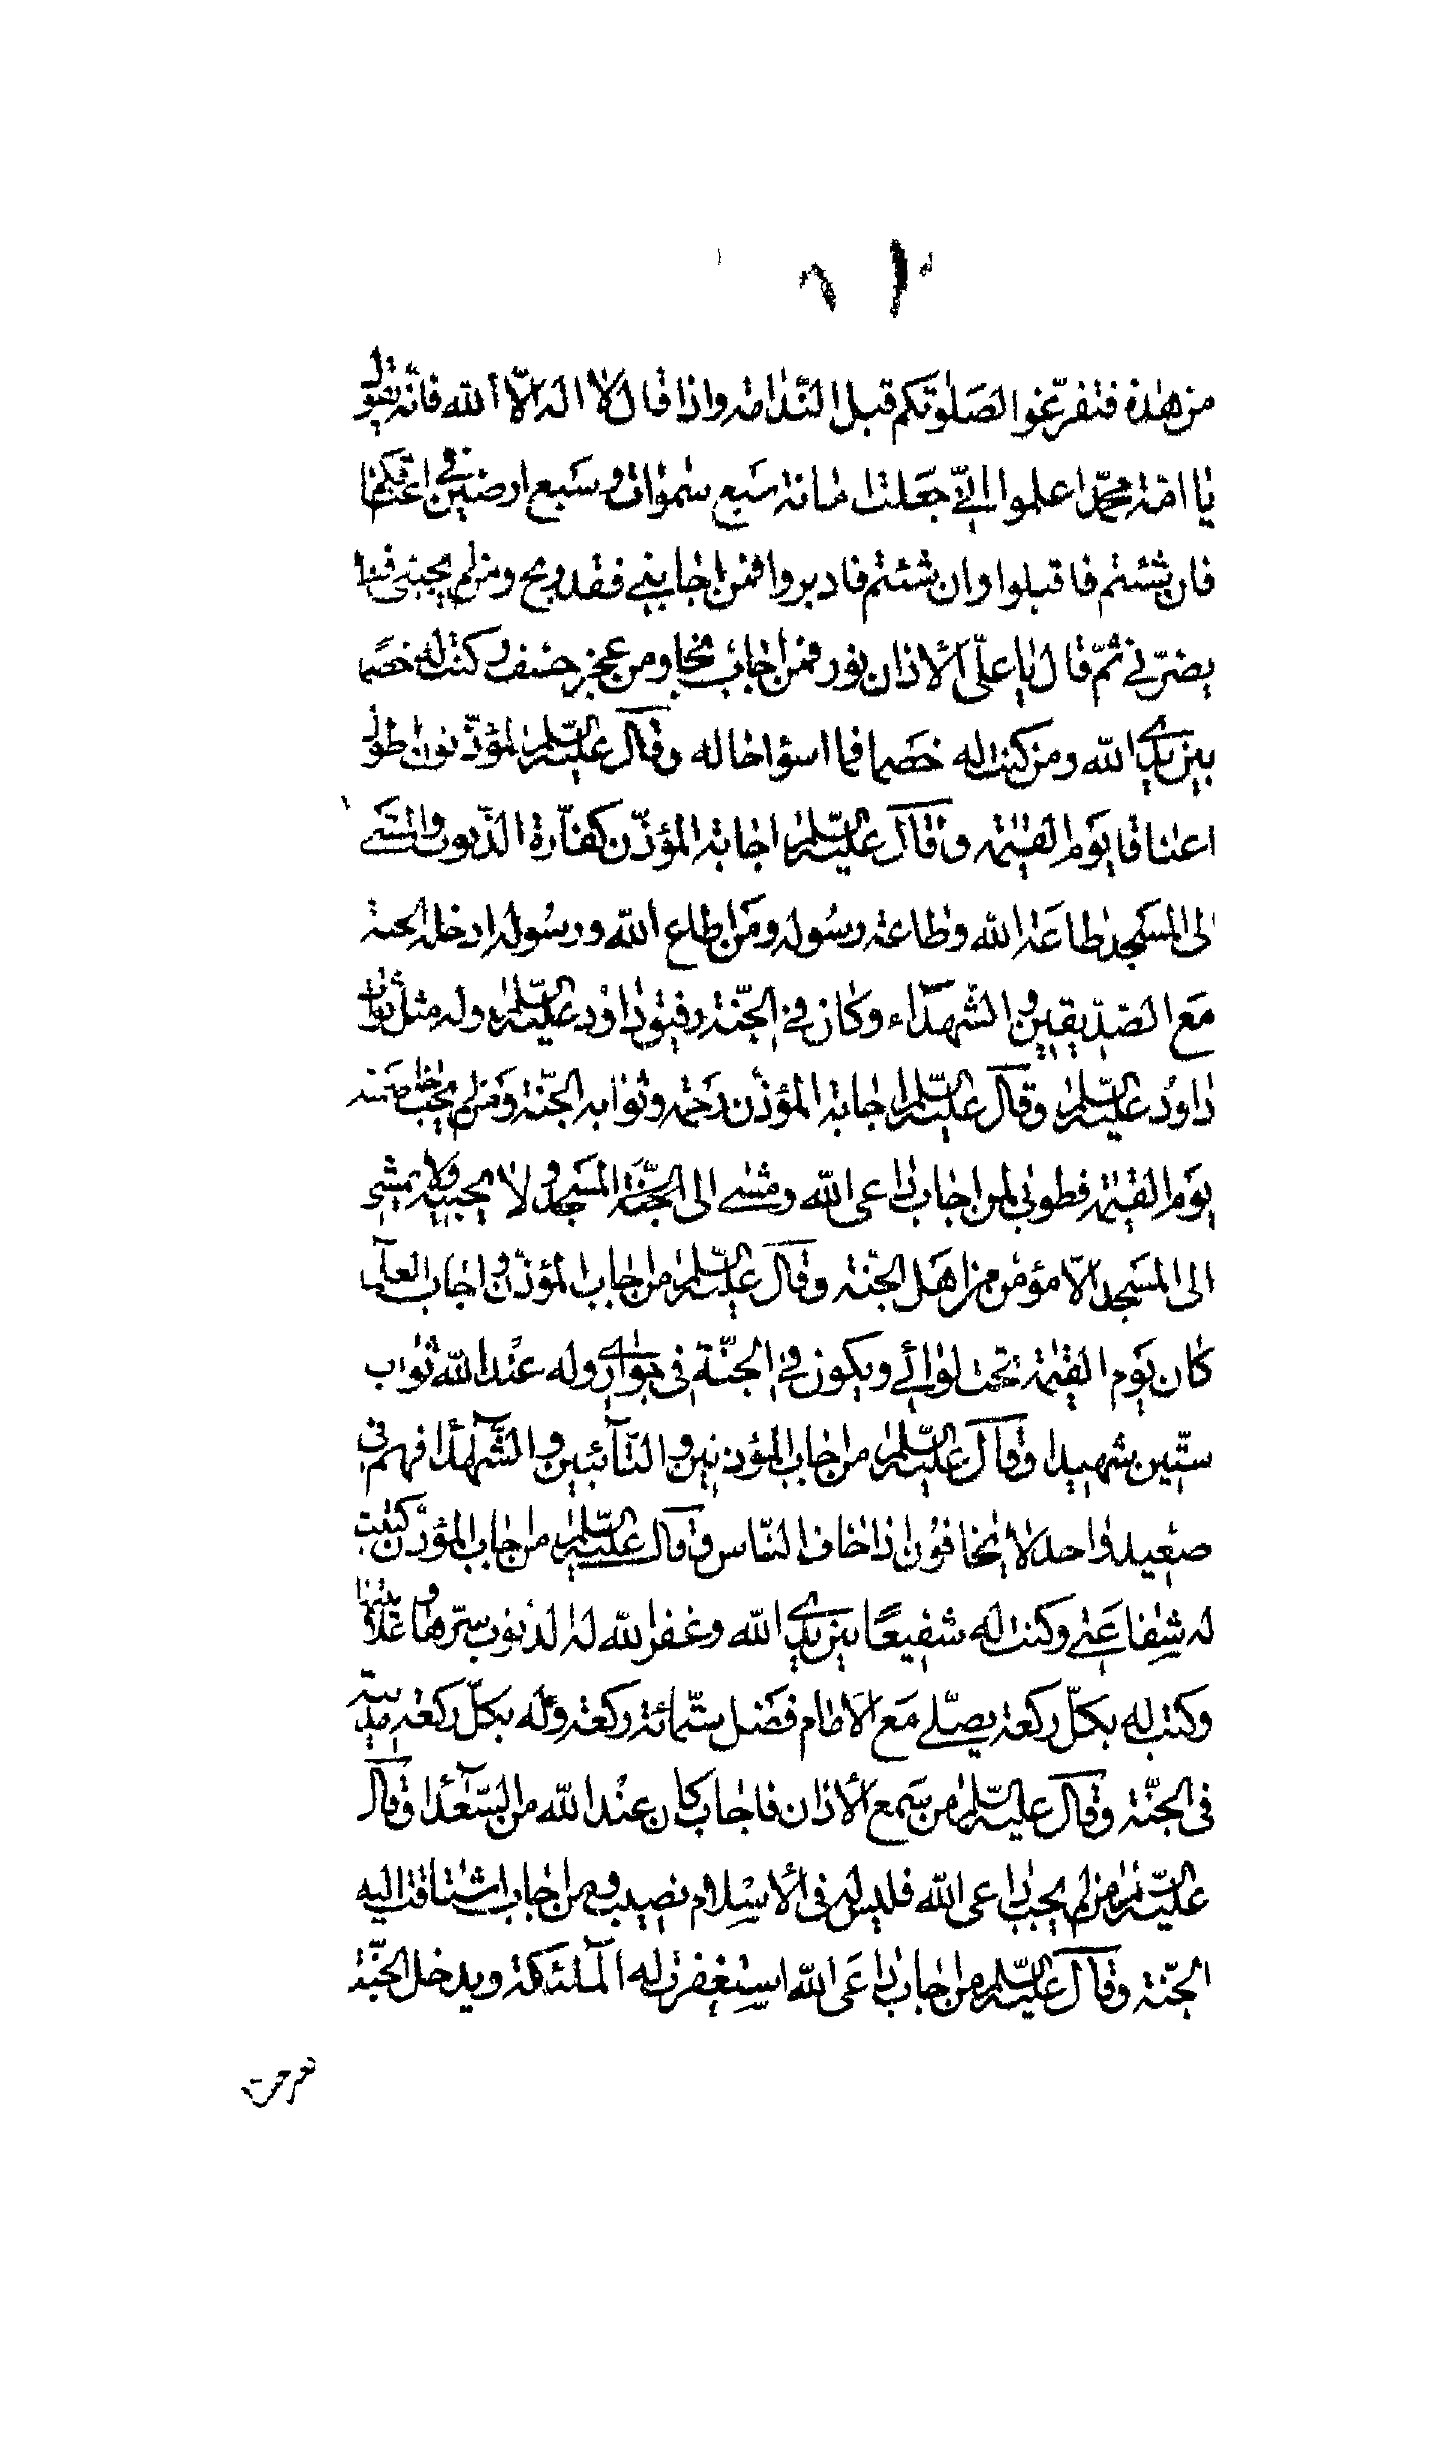 من هذه فتفرّغوا لصلوتكم قبل الندامة واذا قال لا اله الّا الله فانّه يقول
يا امّة محمّد اعلموا انّي جعلت امانة سبع سموات وسبع ارضين في اعناقكم
فان شئتم فاقبلوا وان شئتم فادبروا فمن اجابني فقد ربح ومن لم يجبني فلا
يضرّني ثمّ قال يا علي الأذان نور فمن اجاب نجا ومن عجز خسف وكنت له خصما
بين يدي الله ومن كنت له خصما فما اسوأ حاله وقال عليه السلم المؤذّنون اطول
اعناقا يوم القيمة وقال عليه السلم اجابة المؤذّن كفّارة الذنوب والمشي
الى المسجد طاعة الله وطاعة رسوله ومن اطاع الله ورسوله ادخله الجنة
مع الصدّيقين والشهدآء وكان في الجنّة رفيق داود عليه السلم وله مثل ثواب
داود عليه السلم وقال عليه السلم اجابة المؤذّن رحمة وثوابه الجنّة ومن لم يجب خاصمته
يوم القيمة فطوبى لمن اجاب داعى الله ومشى الى الجنّة المسجد ولا يجيبه ولا يمشي
الى المسجد الّا مؤمن من اهل الجنّة وقال عليه السلم من اجاب المؤذّن واجاب العلمآ
كان يوم القيمة تحت لوائي ويكون في الجنّة في جواري وله عند الله ثواب
ستّين شهيدا وقال عليه السلم من اجاب المؤذنين والتآئبين والشهدآ فهم في
صعيد واحد لا يخافون اذا خاف الناس وقال عليه السلم من اجاب المؤذّن كتبت
له شفاعتي وكنت له شفيعًا بين يدي الله وغفر الله له الذنوب سرّها وعلانيتها
وكتب له بكلّ ركعة يصلّي مع الامام فضل ستّمائة ركعة وله بكلّ ركعة مدينة
في الجنّة وقال عليه السلم من سمع الأذان فاجاب كان عند الله من السعدآ وقال
عليه السلم من لم يجب داعى الله فليس له في الأسلام نصيب ومن اجاب اشتاقت اليه
الجنّة وقال عليه السلم من اجاب داعى الله استغفرت له الملئكة ويدخل الجنّة